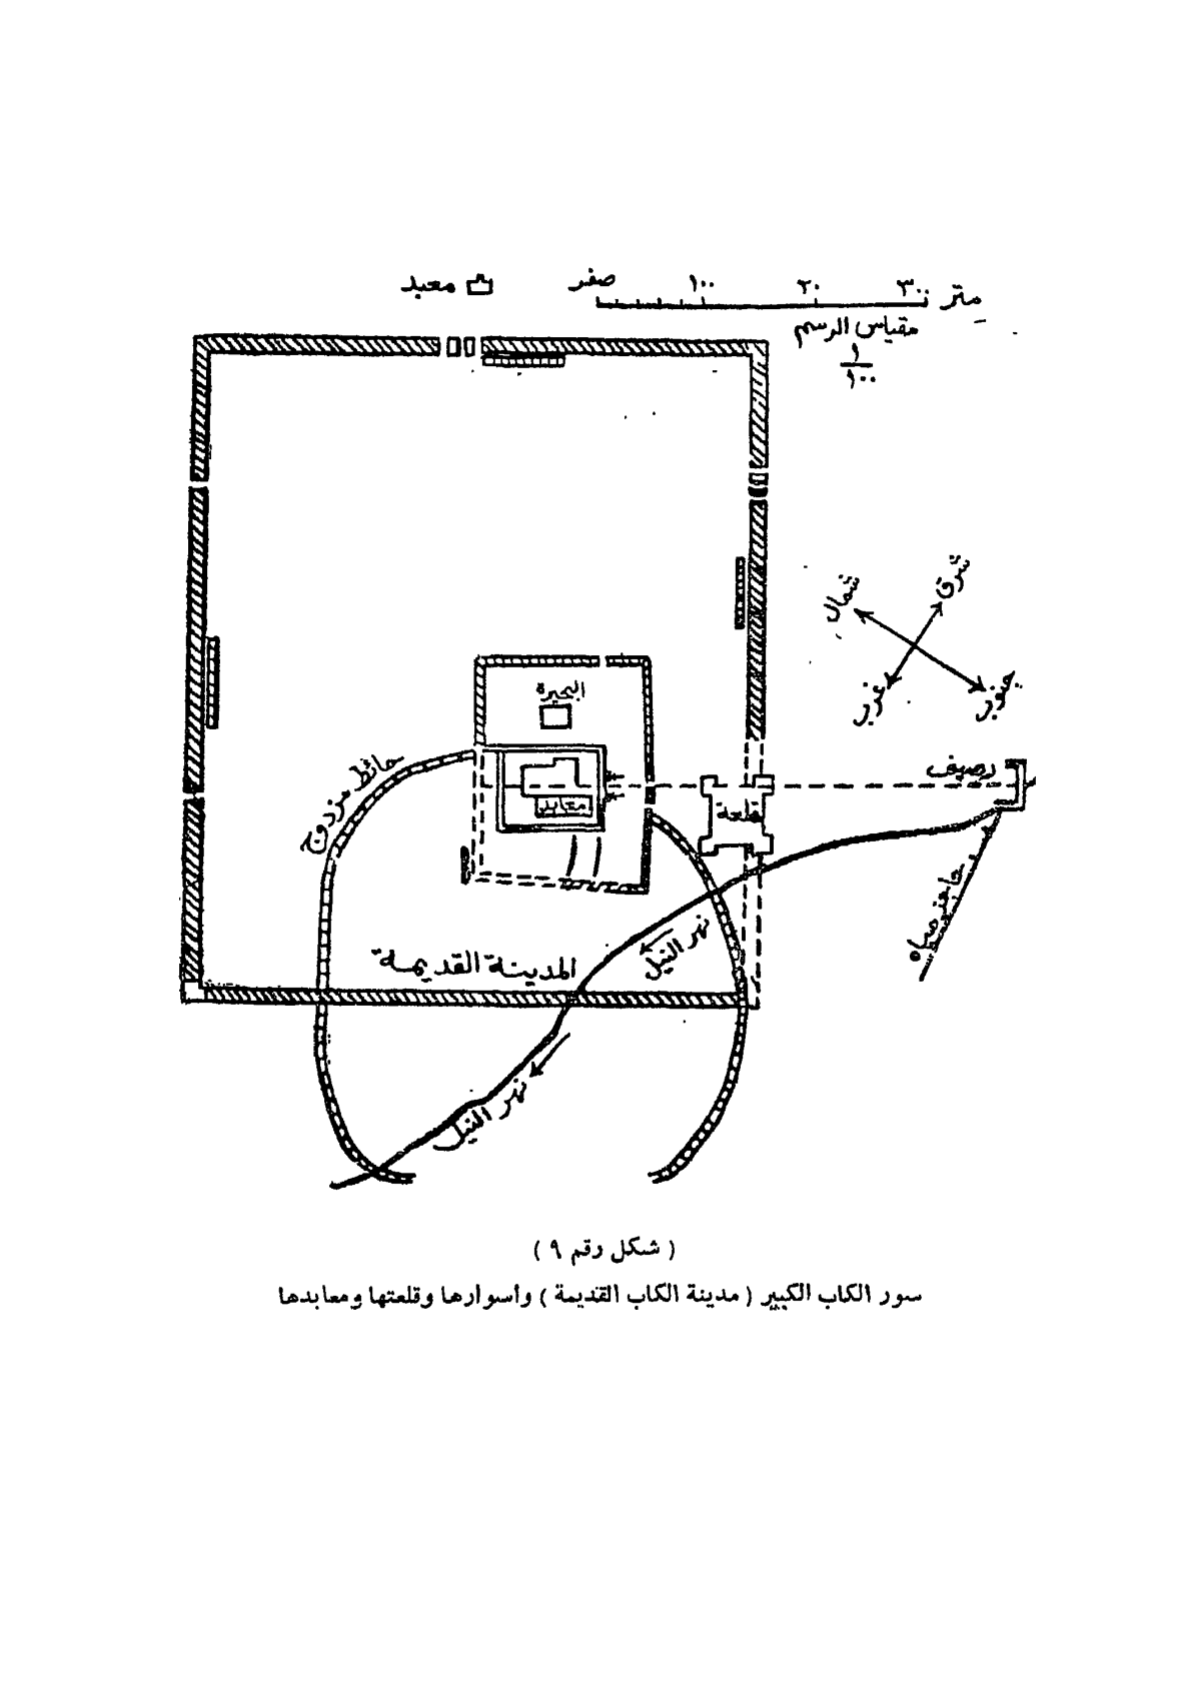 معبد
صفر ١٠٠ ٢٠ ٣٠٠ متر
مقياس الرسم
١
١٠٠
شرق
شمال
غرب
جنوب
البحيرة
معابد
حائط مزدوج
قلعة
رصيف
حاجز مياه
نهر النيل
المدينة القديمة
نهر النيل
( شكل رقم ٩ )
سور الكاب الكبير ( مدينة الكاب القديمة ) وأسوارها وقلعتها ومعابدها